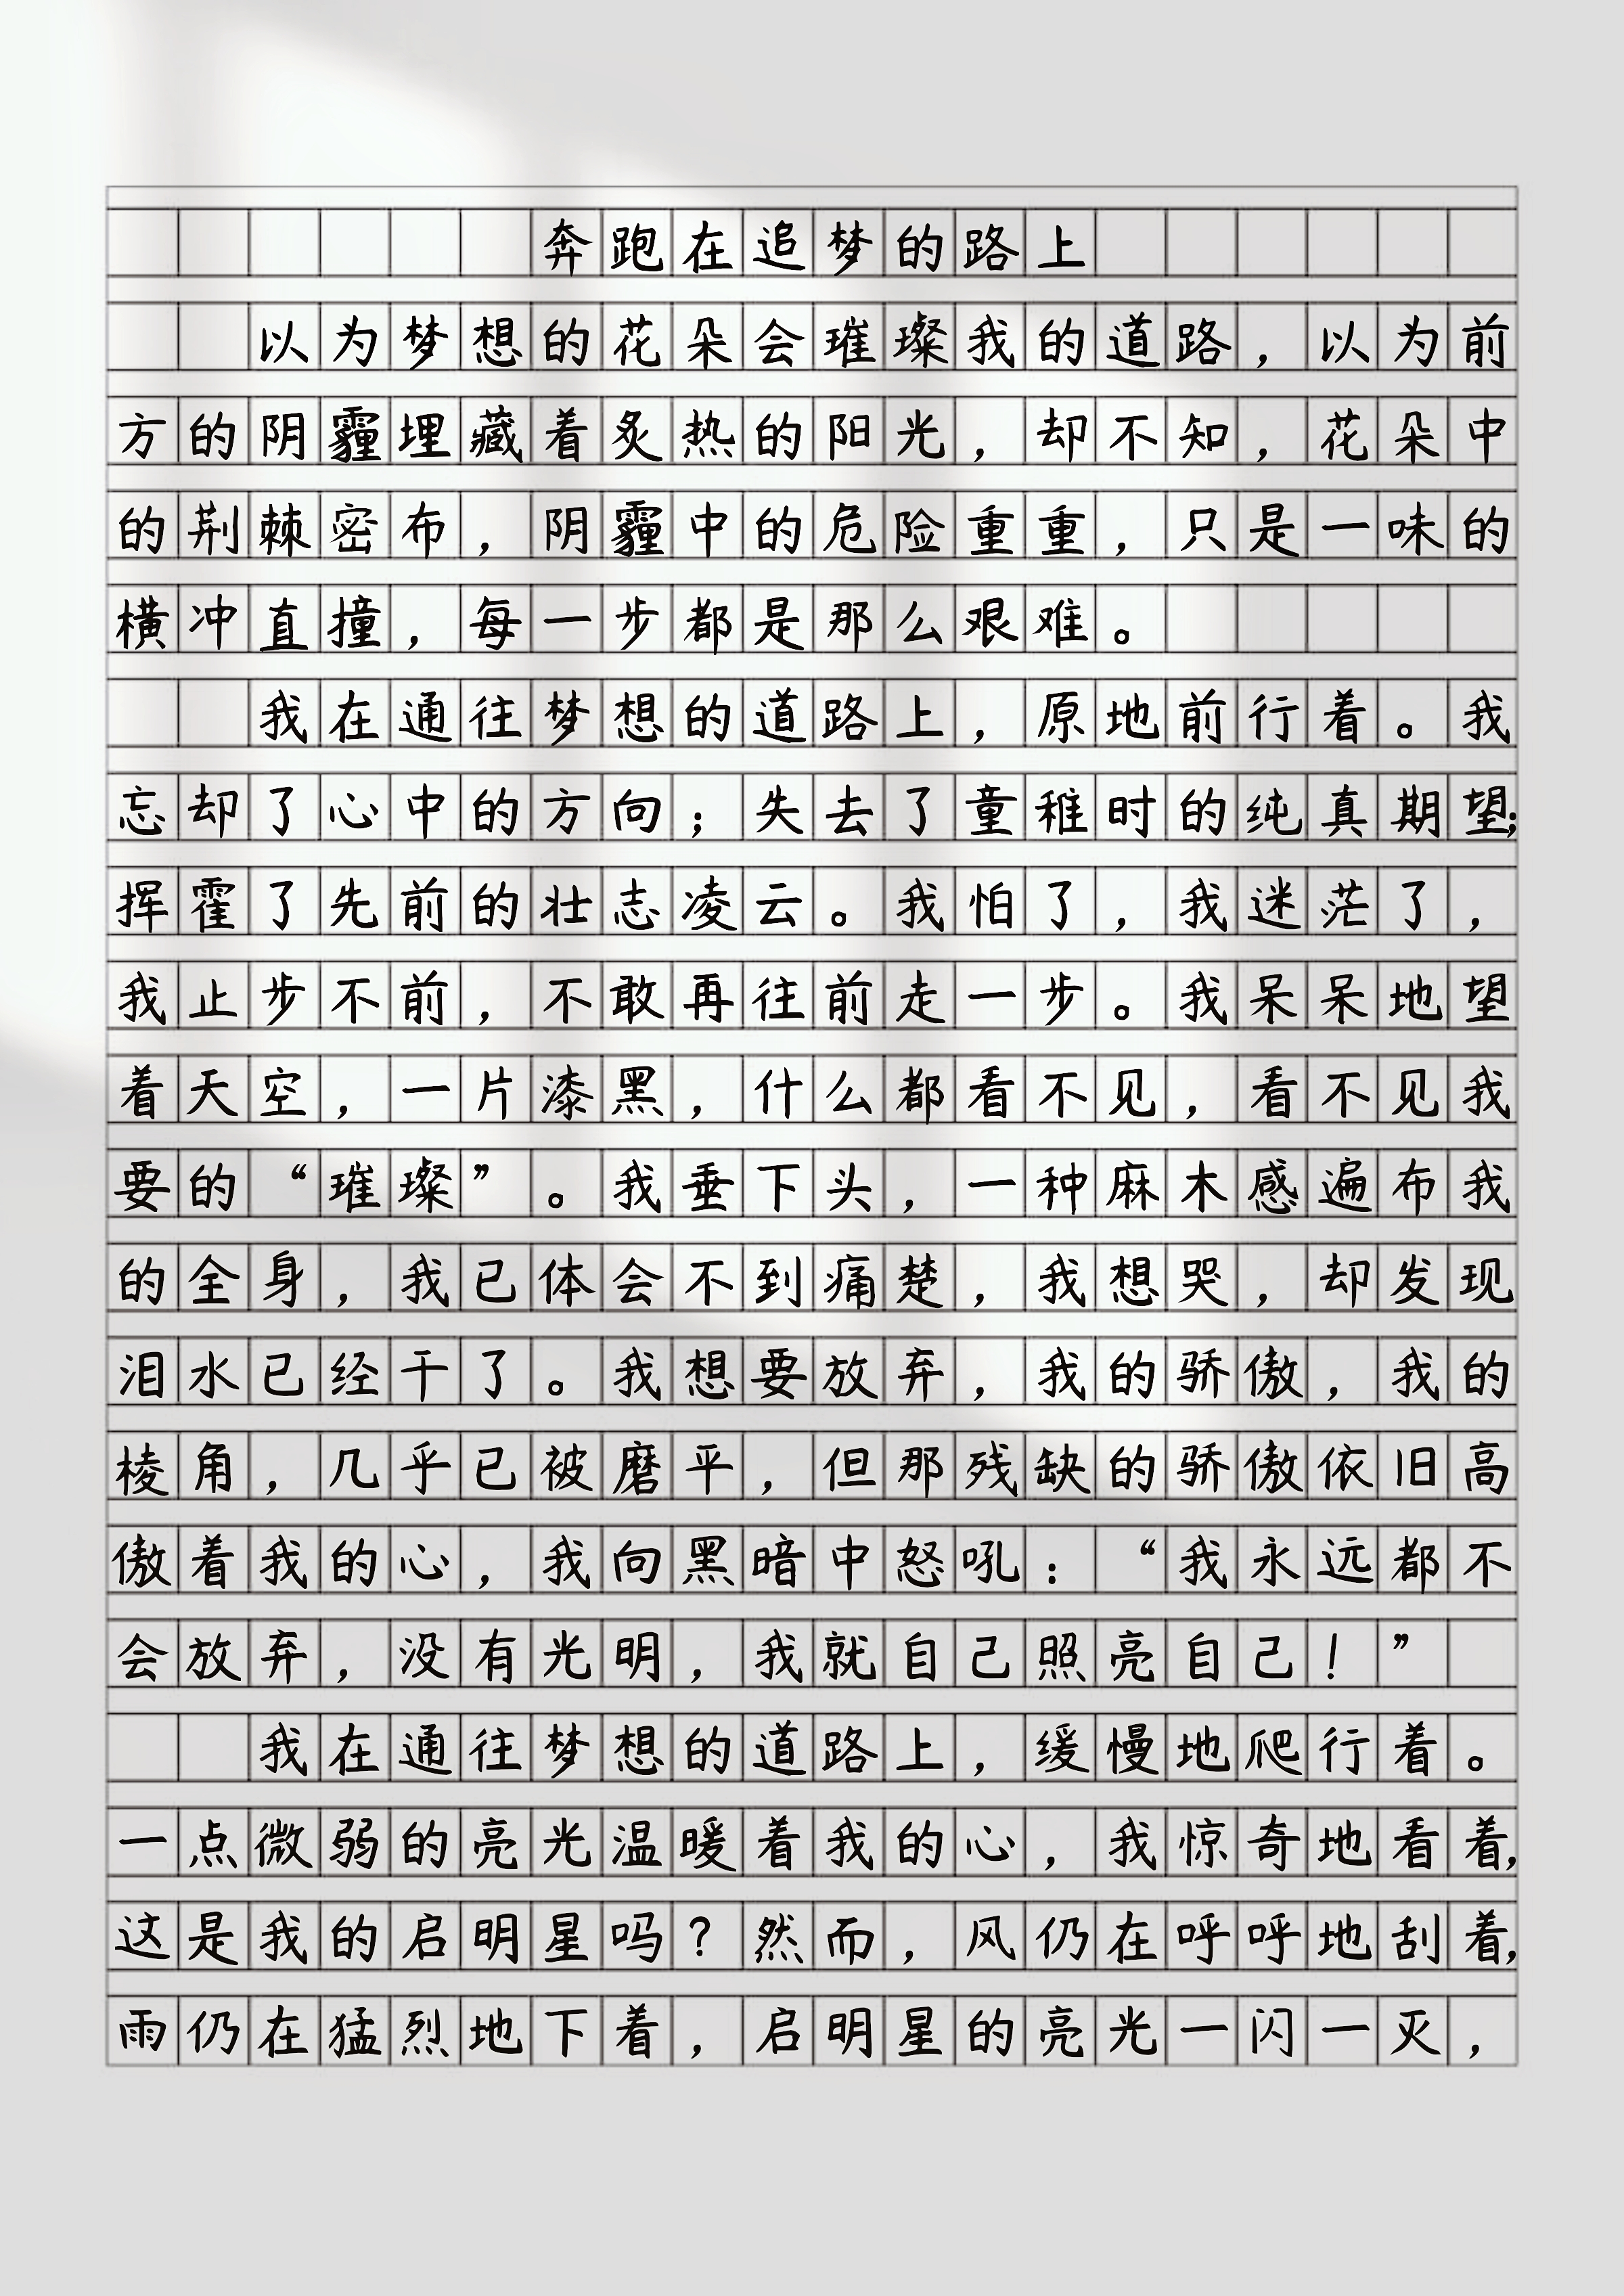 奔跑在追梦的路上
以为梦想的花朵会璀璨我的道路，以为前
方的阴霾埋藏着炙热的阳光，却不知，花朵中
的荆棘密布，阴霾中的危险重重，只是一味的
横冲直撞，每一步都是那么艰难。
我在通往梦想的道路上，原地前行着。我
忘却了心中的方向；失去了童稚时的纯真期望；
挥霍了先前的壮志凌云。我怕了，我迷茫了，
我止步不前，不敢再往前走一步。我呆呆地望
着天空，一片漆黑，什么都看不见，看不见我
要的“璀璨”。我垂下头，一种麻木感遍布我
的全身，我已体会不到痛楚，我想哭，却发现
泪水已经干了。我想要放弃，我的骄傲，我的
棱角，几乎已被磨平，但那残缺的骄傲依旧高
傲着我的心，我向黑暗中怒吼：“我永远都不
会放弃，没有光明，我就自己照亮自己！”
我在通往梦想的道路上，缓慢地爬行着。
一点微弱的亮光温暖着我的心，我惊奇地看着，
这是我的启明星吗？然而，风仍在呼呼地刮着，
雨仍在猛烈地下着，启明星的亮光一闪一灭，